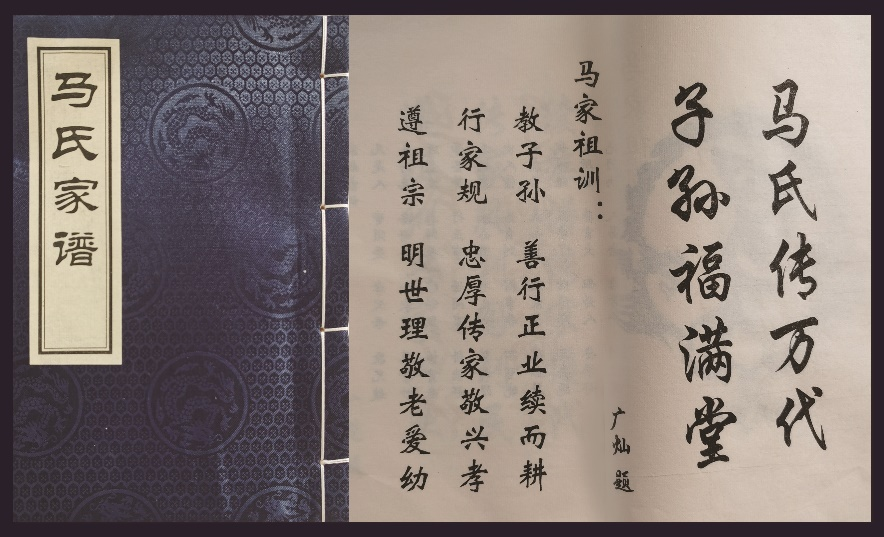 马氏家谱
马氏传万代
子孙福满堂
广灿题
马家祖训：
教子孙 善行正业续而耕
行家规 忠厚传家敬兴孝
遵祖宗 明世理敬老爱幼